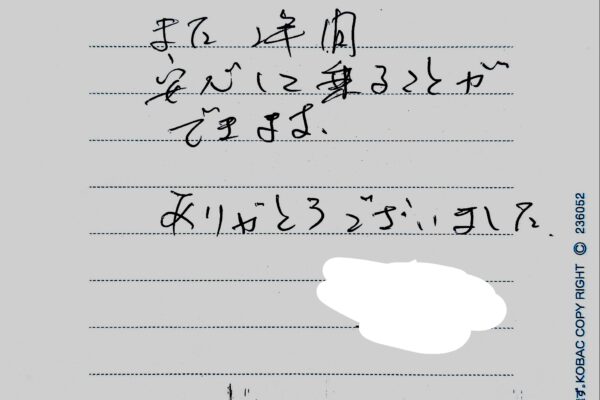 また 2年間
安心して乗ることが
できます.
ありがとうございました.
す。KOBAC COPY RIGHT © 236052